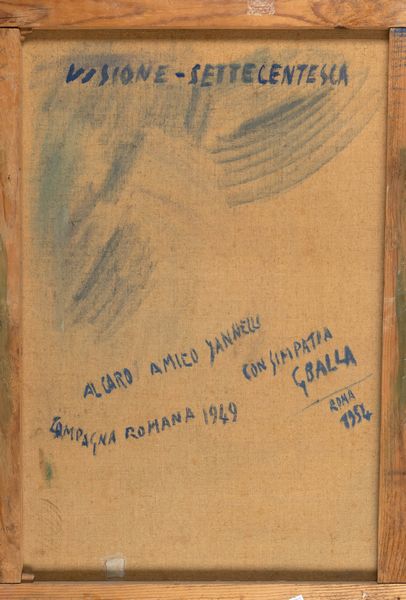 VISIONE - SETTECENTESCA
AL CARO AMICO JANNELLI
CON SIMPATIA
GBALLA
CAMPAGNA ROMANA 1949
ROMA
1954